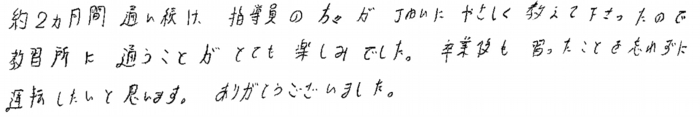 約2ヵ月間 通い続け、指導員の方々が ていねいに やさしく 教えて下さったので
教習所に 通うことが とても 楽しみでした。 卒業後も 習ったことを忘れずに
運転したいと思います。 ありがとうございました。